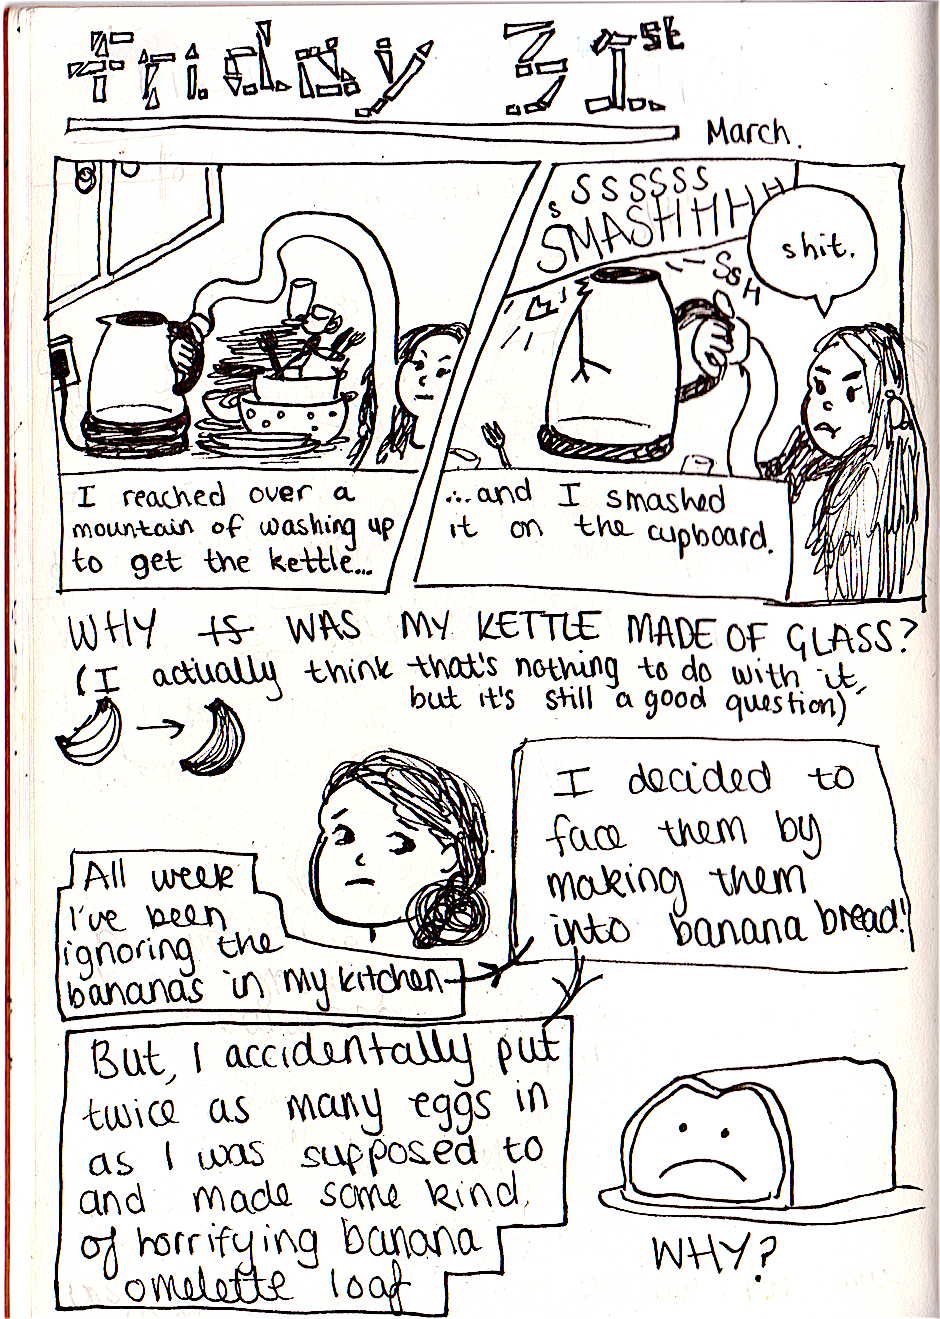 Friday 31st
March.
I reached over a
mountain of washing up
to get the kettle...
s SSSSSS
SMASHHHHH
SSH
shit.
...and I smashed
it on the cupboard.
WHY IS WAS MY KETTLE MADE OF GLASS?
(I actually think that's nothing to do with it,
but it's still a good question)
All week
I've been
ignoring the
bananas in my kitchen
I decided to
face them by
making them
into banana bread!
But, I accidentally put
twice as many eggs in
as I was supposed to
and made some kind
of horrifying banana
omelette loaf
WHY?